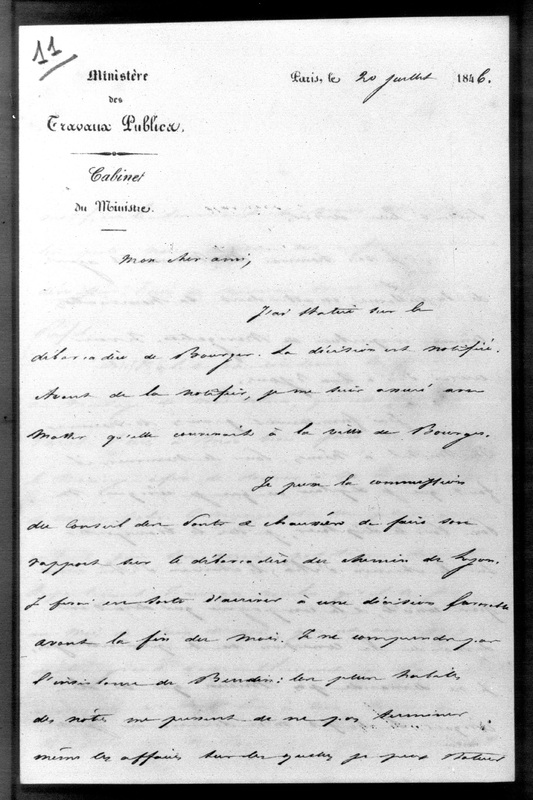 11
Ministère
des
Travaux Publics.
Cabinet
du Ministre.
Paris, le 20 juillet 1846.
Mon cher ami,
J'ai statué sur le
débarcadère de Bourges. La décision est notifiée.
Avant de la notifier, je me suis assuré avec
qu'elle convenait à la ville de Bourges.
Je presse la commission
du Conseil des Ponts et chaussées de faire son
rapport sur le débarcadère du chemin de Lyon.
Je ferai en sorte d'arriver à une décision formelle
avant la fin du mois. Je ne comprends pas
l'insistance de : les plus habiles
des nôtres me pressent de ne pas terminer
même les affaires sur lesquelles je peux statuer